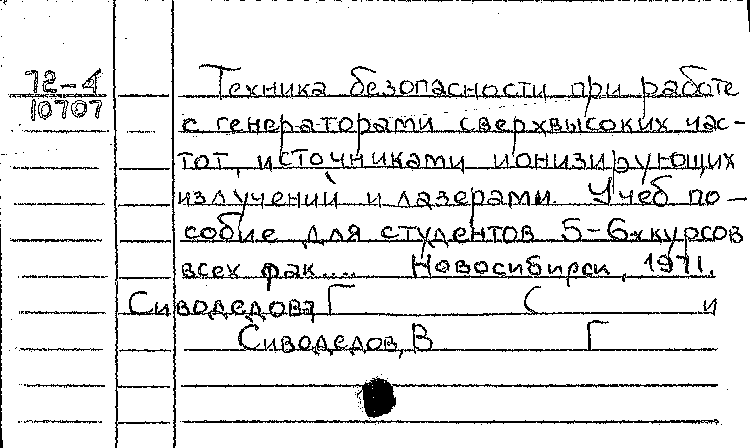 72-4
10707
Техника безопасности при работе
с генераторами сверхвысоких час-
тот, источниками ионизирующих
излучений и лазерами. Учеб по-
собие для студентов 5-6х курсов
всех фак.... Новосибирск, 1971.
Сиводедова, Г С и
Сиводедов, В Г